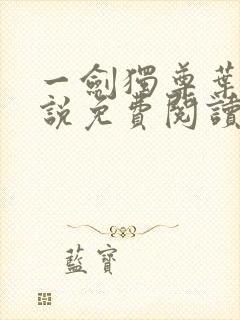 一劍獨尊葉
說免費閱讀
藍寶